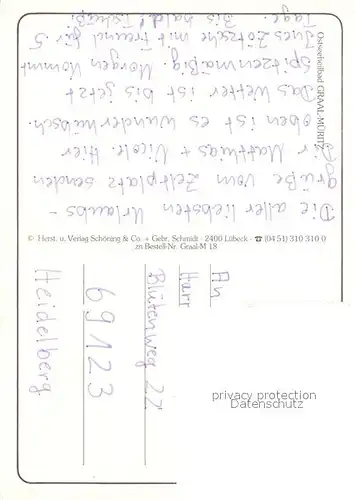 Die aller liebsten Urlaubs-
grüße vom Zeltplatz senden
Dir Matthias + Nicole. Hier
oben ist es wunderhübsch.
Das Wetter ist bis jetzt
spitzenmäßig. Morgen kommt
Ines Zötzsche mit Freund für 5
Tage. Bis bald! Tschüß
Ostseeheilbad GRAAL-MÜRITZ
© Herst. u. Verlag Schöning & Co. + Gebr. Schmidt · 2400 Lübeck · ☎ (04 51) 310 310 0
zu Bestell-Nr. Graal-M 18
An
Harr
Blütenweg 22
69123
Heidelberg
privacy protection
Datenschutz